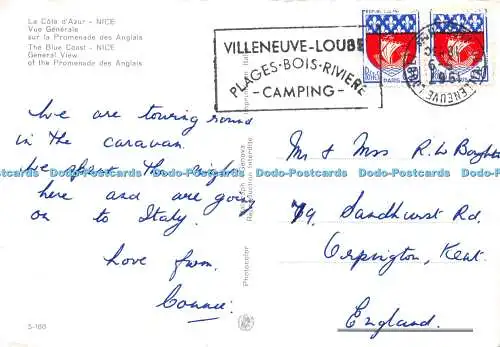 La Côte d'Azur - NICE
Vue Générale
sur la Promenade des Anglais
The Blue Coast - NICE
General View
of the Promenade des Anglais
VILLENEUVE-LOUBE
PLAGES·BOIS·RIVIERE
-CAMPING-
PARIS
We are touring round
in the caravan.
We spent the night
here and are going
on to Italy.
Love from
Connie.
Mr & Mrs R. W.
79 Sandhurst Rd.
Orpington, Kent.
England.
Reproduction Interdite
Photocolor
S-160
Dodo-Postcards Dodo-Postcards Dodo-Postcards Dodo-Postcards